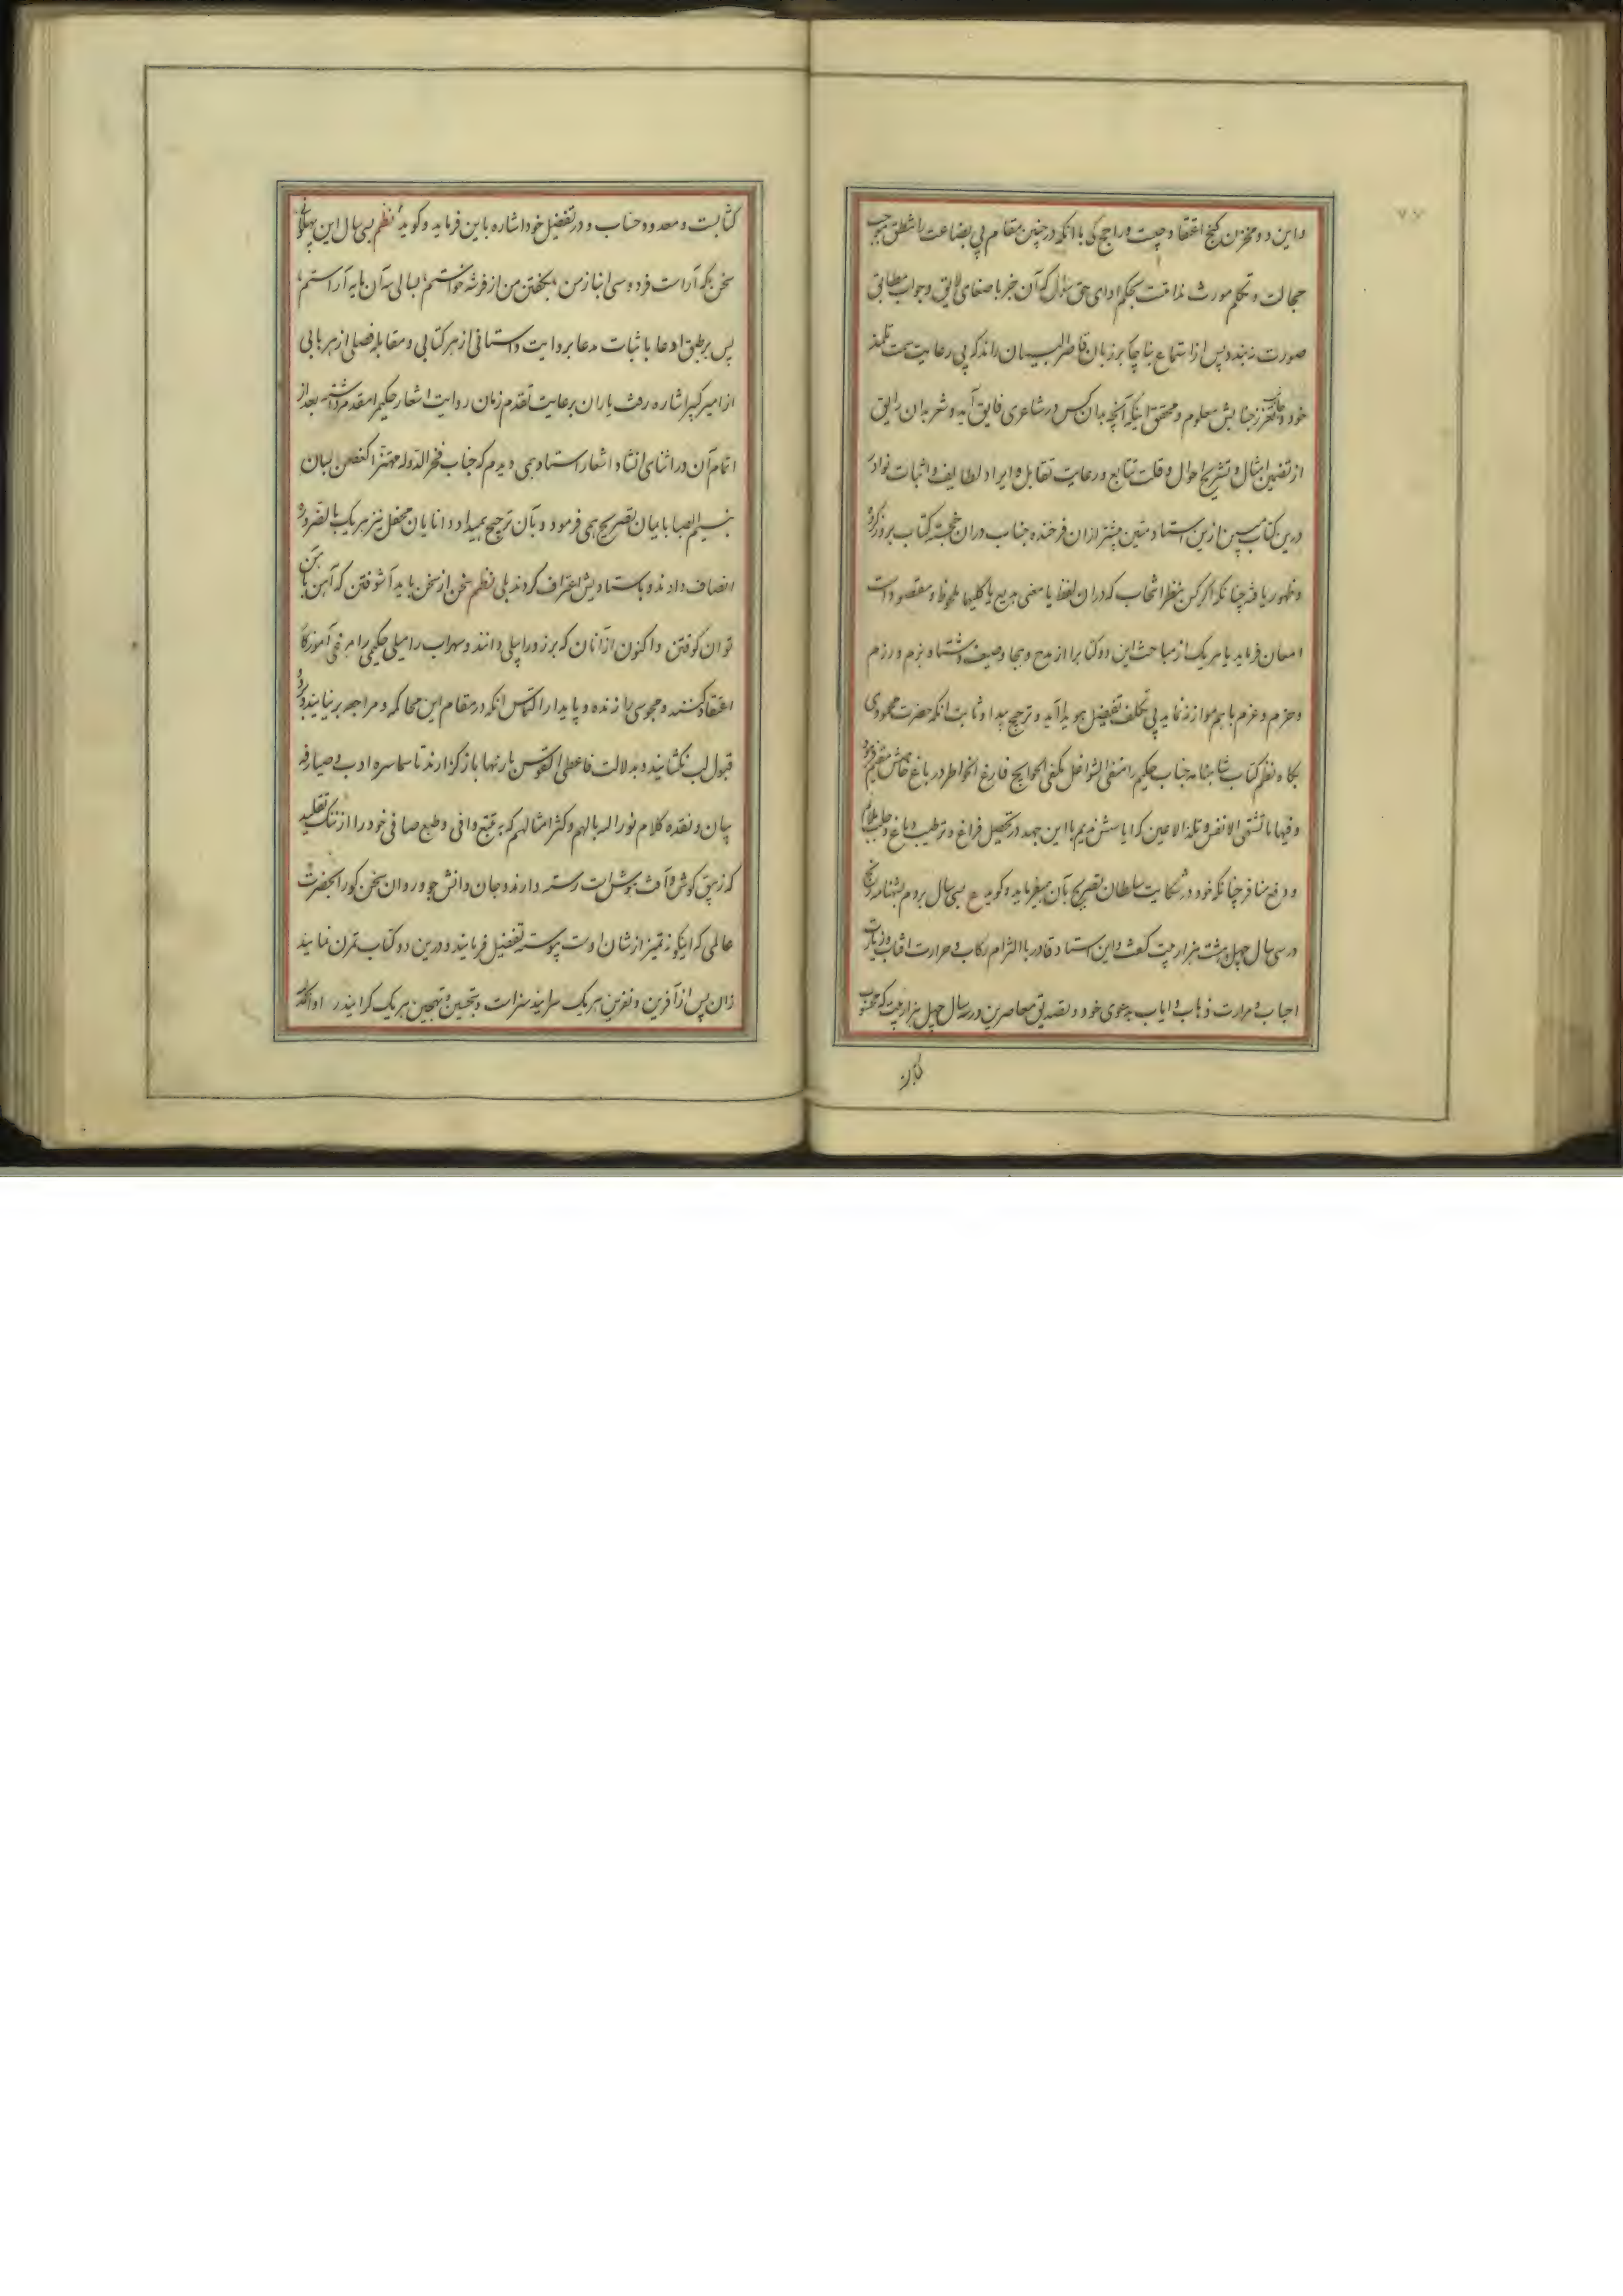 ۷۷
واین دو مخزن گنج اعتقاد چیست و راجح کی با انکه در چنین مقام بی بضاعت را منطق موجب
خجالت و تکلم مورث ندامت بحکم ادای حق سؤال که آن خبر باصغای لایق و جواب مطابق
صورت نبندد پس از استماع بناچار بر زبان قاصر البیان راند که بی رعایت سمت تلمذ
خود و جانب جنابش معلوم و محقق اینکه آنچه بدان کس در شاعری فایق آید و شعر بدان رایق
از تضمین امثال و تشریح احوال و قلت تتابع و رعایت تقابل و ایراد لطایف و اثبات نوادر
درین کتاب مبین ازین استاد متین بیشتر ازان فرخنده جناب دران خجسته کتاب بروز کرده
و ظهور یافته چنانکه اگر کس بنظر انتخاب که دران لفظ یا معنی بدیع یا کلیهما ملحوظ و مقصود است
امعان فرماید یا هر یک از مباحث این دو کتاب را از مدح و هجا و صیف و شتا و بزم و رزم
و حزم و عزم با هم موازنه نماید بی تکلف تفضیل هویدا آید و ترجیح پیدا و ثابت انکه حضرت محمودی
بگاه نظم کتاب شاهنامه جناب حکیم را منفی الشواغل مکفی الحوایج فارغ الخواطر در باغ خاصش مقیم فرمود
و فیها ما تشتهی الانفس و تلذ الاعین که ایاسش ندیم با این جهد در تحصیل فراغ و ترطیب دماغ و جلب ملایم
و دفع منافر چنانکه خود در شکایت سلطان تصریح بآن میفرماید و گوید ع بسی سال بردم بشهنامه رنج
در سی سال چهل هشت هزار بیت گفت و این استاد قادر با التزام رکاب و حرارت افتاب و زیارت
احباب و مرارت ذهاب و ایاب بدعوی خود و تصدیق معاصرین در سه سال چهل هزار بیت که محسوب
کتابت و معدود حساب و در تفضیل خود اشاره باین فرماید و گوید نظم بسی سال این پهلوانی
سخن بگر آراست فردوسی انباز من بگفتن من از فرشه خواستم بسالی سه آن مایه آراستم
پس بر طبق ادعا باثبات مدعا بروایت داستانی از هر کتابی و مقابله فصلی از هر بابی
از امیر کبیر اشاره رفت یاران برعایت تقدم زمان روایت اشعار حکیم را مقدم داشته بعد از
اتمام آن در اثنای انشاد اشعار استاد همی دیدم که جناب فخر الدوله مهتزا کغصن البان
بنسیم الصبا با بیان تصریح همی فرمود و بآن ترجیح همیداد و دانایان محفل نیز هر یک بالضروره
انصاف دادند و باستادیش اعتراف کردند بلی نظم سخن از سخن باید آشوفتن که آهن بآهن
توان کوفتن و اکنون ازآنان که برزو را پیلی دانند و سهراب را میلی حکیمی را مرغی آموزگار
اعتقاد کنند و مجوسی را زنده و پایدار التماس انکه در مقام این محاکمه و مراجعه برنیایند و در
قبول لب نگشایند و بدلالت فاعطی القوس باریها بازگذارند تا سماسره ادب و صیارفه
بیان و نقده کلام نور الله بالهم و کثر امثالهم که بتتبع وافی و طبع صافی خود را از ننگ تقلید
که زیبق گوش و آفت هوش است رسته دارند و جان دانش جو و روان سخن گو را بحضرت
عالمی که اینگونه تمیز از شان اوست پیوسته تفضیل فرمایند و درین دو کتاب تمرن نمایند
زان پس از آفرین و نفرین هر یک سرایند سزاست و بتحسین و تهجین هر یک گرایند روا و انکه